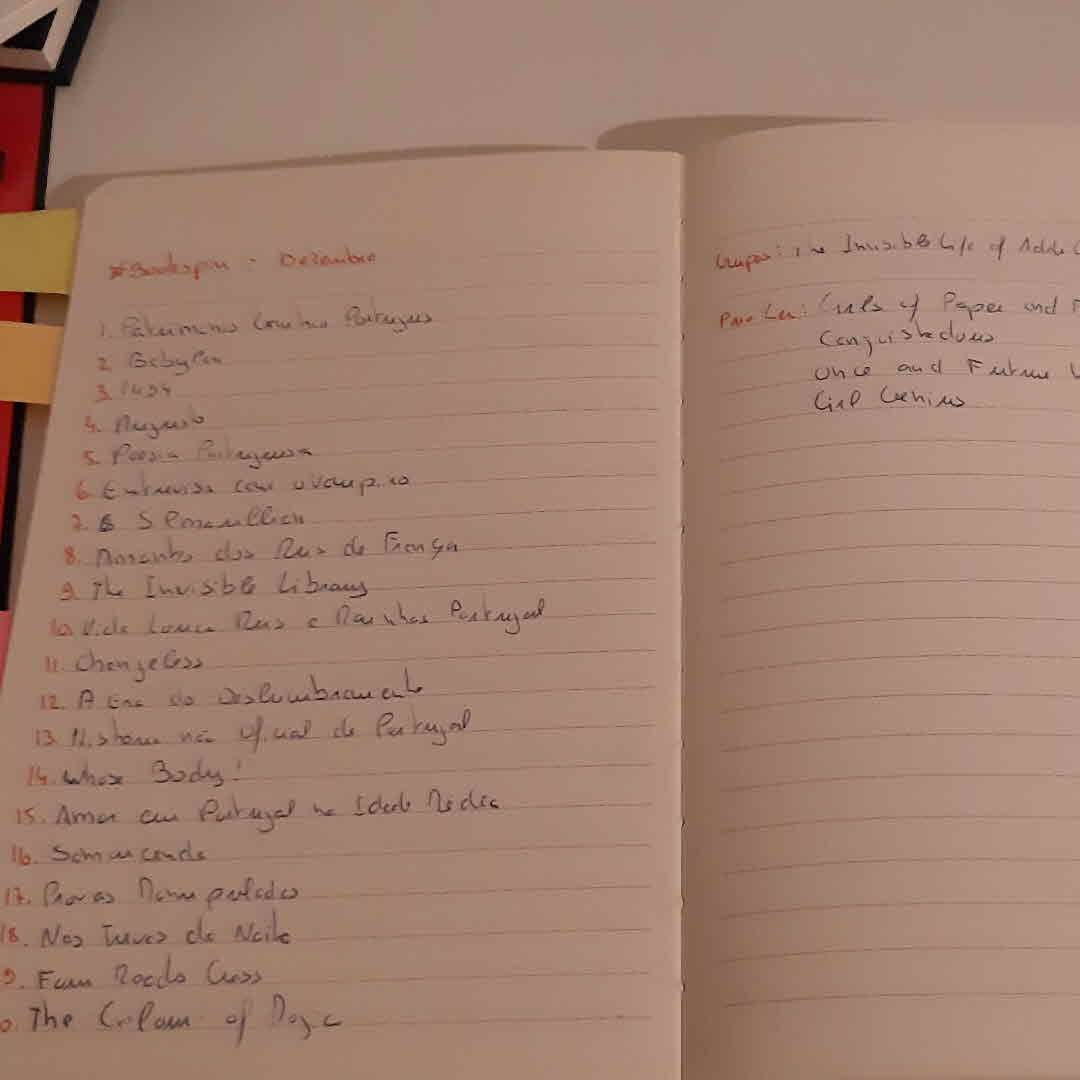 #Bookspin: Dezembro
1. Património Genético Português
2. Babylon
3. 1494
4. Augusto
5. Poesia Portuguesa
6. Entrevista com o Vampiro
7. Silmarillion
8. Amantes dos Reis de França
9. The Invisible Library
10. Vida Louca Reis e Rainhas Portugal
11. Changeless
12. A Era do Deslumbramento
13. História não Oficial de Portugal
14. Whose Body?
15. Amor em Portugal na Idade Média
16.
17. Provas Manipuladas
18. Nas Trevas da Noite
9. Four Roads Cross
0. The Colour of Magic
Grupos: The Invisible Life of Addie
Para Ler: Girls of Paper and
Conquistadores
Once and Future
Girl Genius